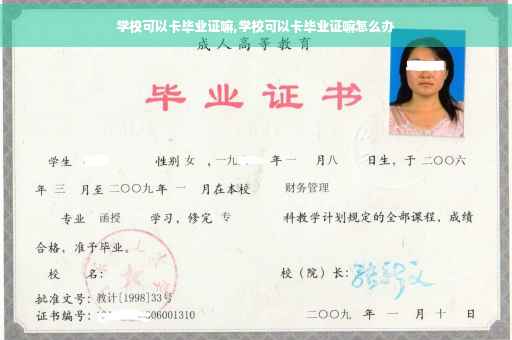 学校可以卡毕业证嘛,学校可以卡毕业证嘛怎么办
成人高等教育
毕业证书
学生 性别 女 ，一九 年 一 月八 日生，于 二〇〇六
年 三 月至 二〇〇九 年 一 月在本校 财务管理
专业 函授 学习，修完 专 科教学计划规定的全部课程，成绩
合格，准予毕业。
校 名： 校（院）长：
批准文号：教计[1998]33号
证书编号： 06001310 二〇〇九 年 一 月 十 日